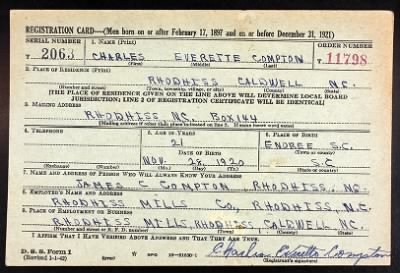 REGISTRATION CARD—(Men born on or after February 17, 1897 and on or before December 31, 1921)
SERIAL NUMBER 1. NAME (Print) ORDER NUMBER
T 2063 CHARLES EVERETTE COMPTON T 11798
(First) (Middle) (Last)
2. PLACE OF RESIDENCE (Print)
RHODHISS CALDWELL N.C.
(Number and street) (Town, township, village, or city) (County) (State)
[THE PLACE OF RESIDENCE GIVEN ON THE LINE ABOVE WILL DETERMINE LOCAL BOARD
JURISDICTION; LINE 2 OF REGISTRATION CERTIFICATE WILL BE IDENTICAL]
3. MAILING ADDRESS
RHODHISS N.C. BOX 144
[Mailing address if other than place indicated on line 2. If same insert word same]
4. TELEPHONE 5. AGE IN YEARS 6. PLACE OF BIRTH
21 ENOREE S.C.
DATE OF BIRTH (Town or county)
NOV. 28, 1920 S.C
(Exchange) (Number) (Mo.) (Day) (Yr.) (State or country)
7. NAME AND ADDRESS OF PERSON WHO WILL ALWAYS KNOW YOUR ADDRESS
JAMES C COMPTON, RHODHISS, N.C.
8. EMPLOYER'S NAME AND ADDRESS
RHODHISS MILLS CO, RHODHISS, N.C
9. PLACE OF EMPLOYMENT OR BUSINESS
RHODHISS MILLS, RHODHISS, CALDWELL N.C.
(Number and street or R. F. D. number) (Town) (County) (State)
I AFFIRM THAT I HAVE VERIFIED ABOVE ANSWERS AND THAT THEY ARE TRUE.
D. S. S. Form 1
(Revised 1-1-42) (over) GPO 16—21630-1 Charles Everette Compton
(Registrant's signature)